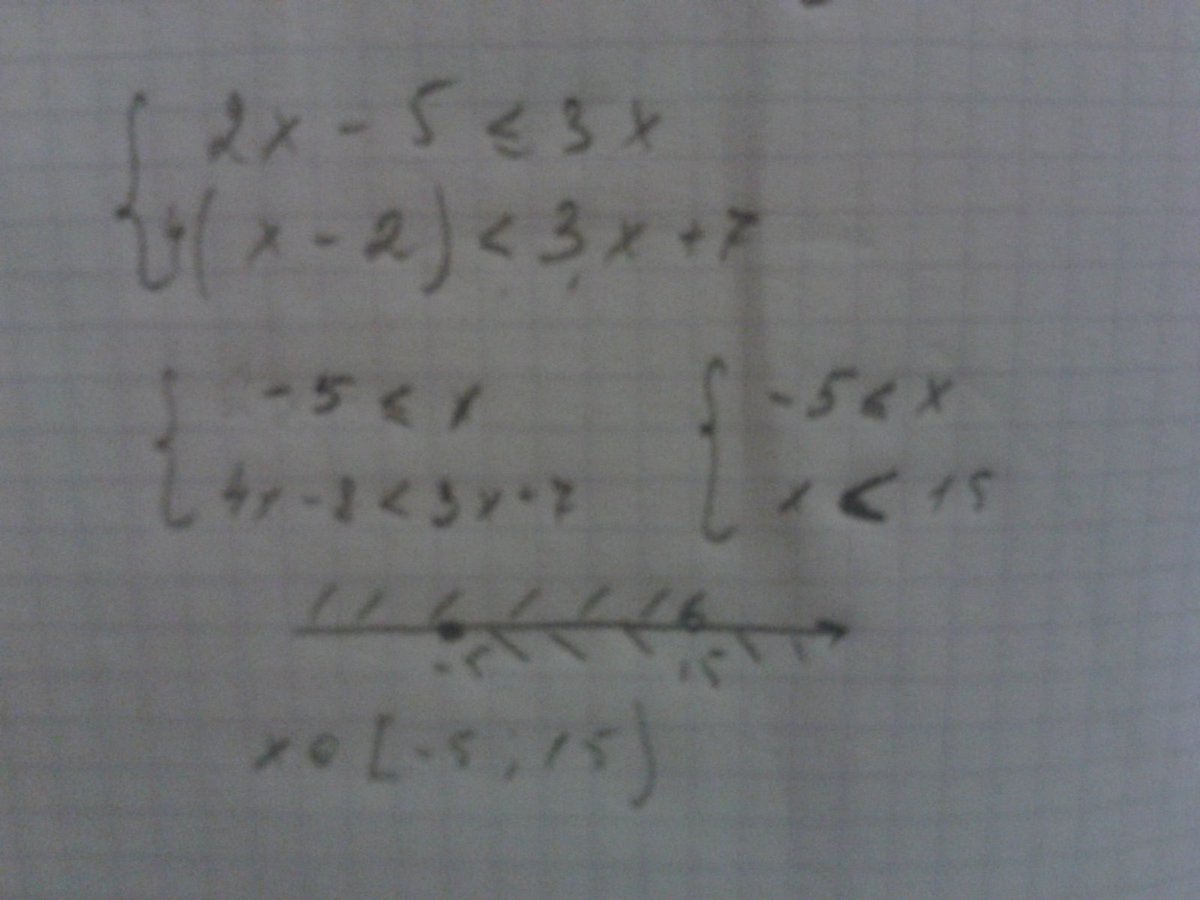 2x - 5 ≤ 3x
4(x - 2) < 3x + 7
-5 ≤ x
4x - 8 < 3x + 7
-5 ≤ x
x < 15
-5 15
x ∈ [-5; 15)